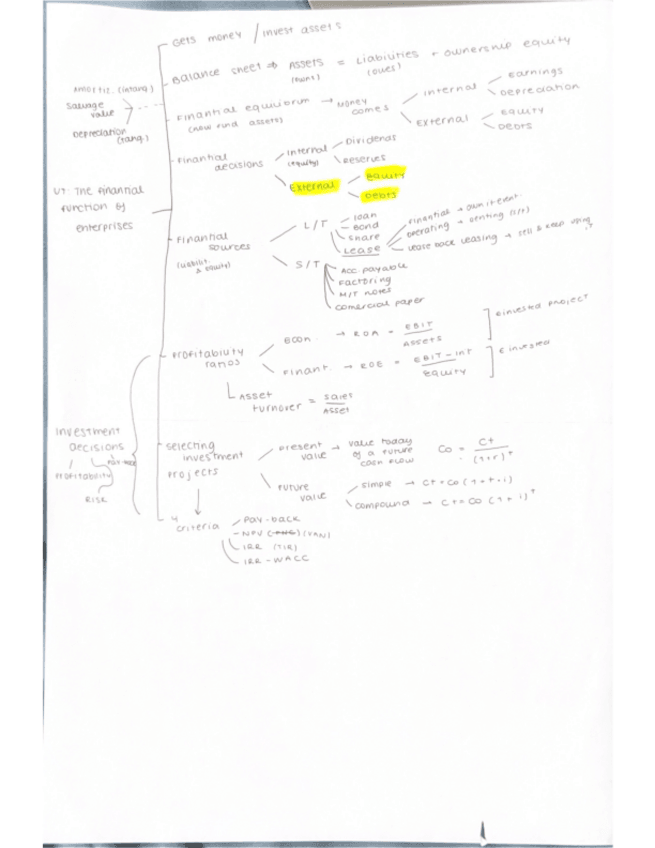 Gets money / invest assets
Balance sheet => Assets = Liabilities + ownership equity
(owes)
Amortiz. (intang.)
Salvage value
Depreciation (tang.)
Finantial equilibrium → Money comes
(how fund assets)
internal
earnings
depreciation
External
equity
Debts
Finantial decisions
internal (equity)
Dividends
Reserves
External
Equity
Debts
U7: The finantial function of enterprises
Finantial sources
(liabilit. & equity)
L/T
loan
Bond
Share
Lease
Finantial → own it event.
operating → renting (S/T)
Lease back leasing → sell & keep using it
S/T
Acc. payable
Factoring
M/T notes
comercial paper
Profitability ratios
econ. → ROA = EBIT / Assets
einvested project
Finant. → ROE = EBIT - Int / Equity
Asset turnover = Sales / Asset
investment decisions
Profitability
Risk
selecting investment projects
present value → value today of a future cash flow
Co = Ct / (1+r)^t
Future value
simple → Ct = Co (1 + t · i)
compound → Ct = Co (1 + i)^t
4 criteria
Pay-back
NPV (VAN)
IRR (TIR)
IRR - WACC